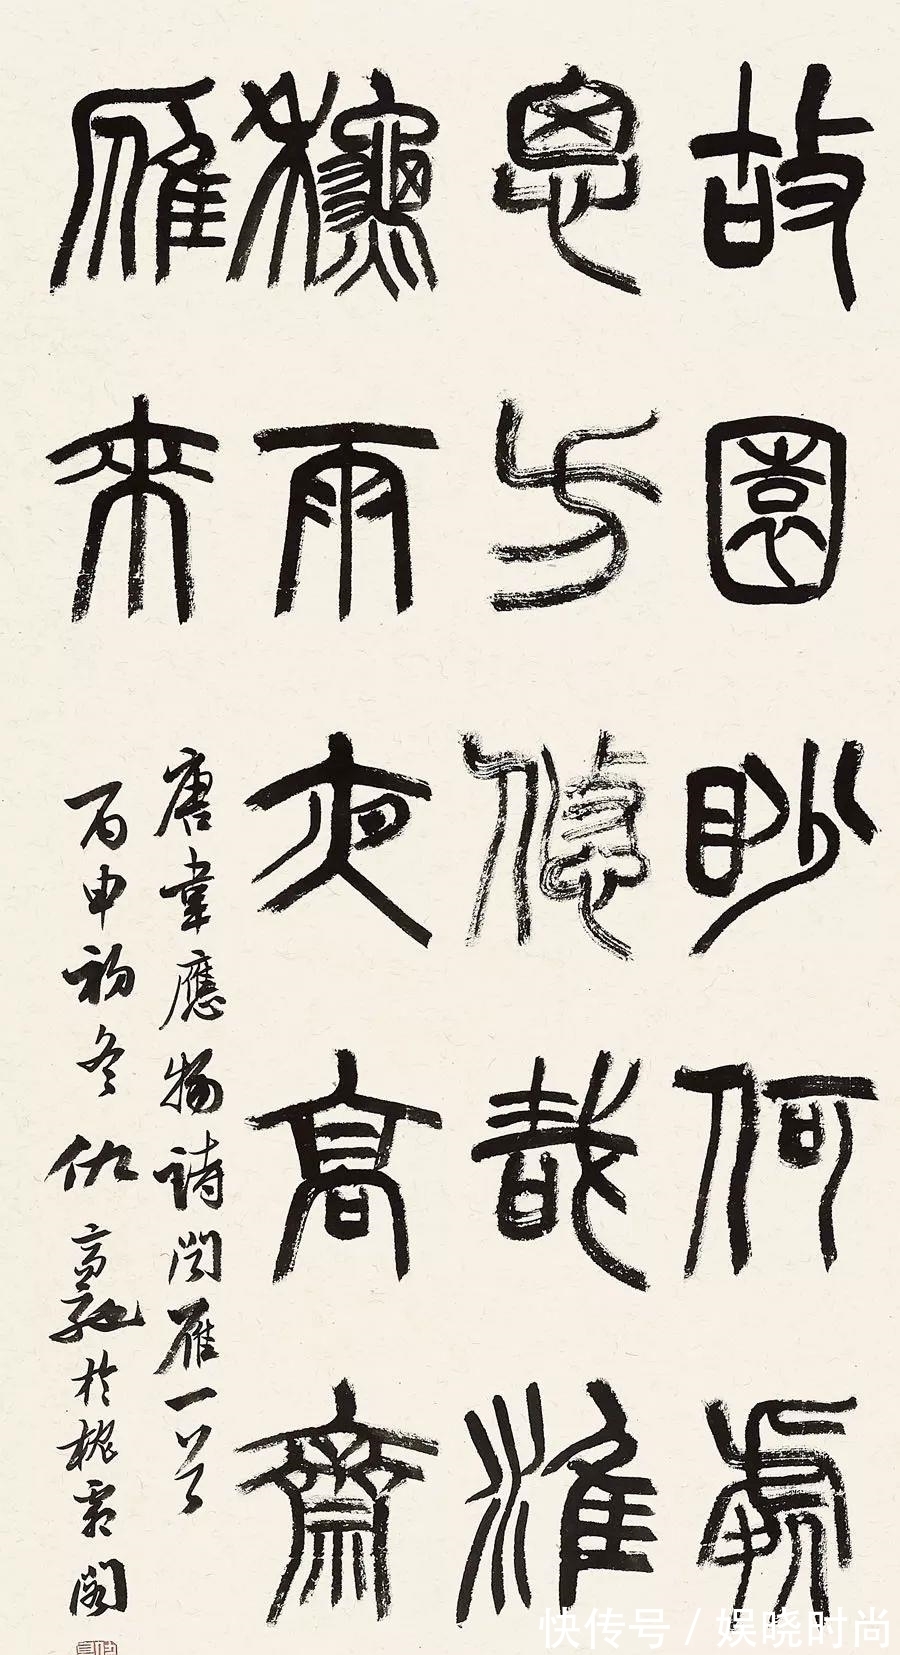 故園眇何處
思方悠哉淮
龝雨夜高齋
雁來
唐韋應物詩聞雁一首
丙申初冬仇高馳於閣
快传号 / 娱晓时尚